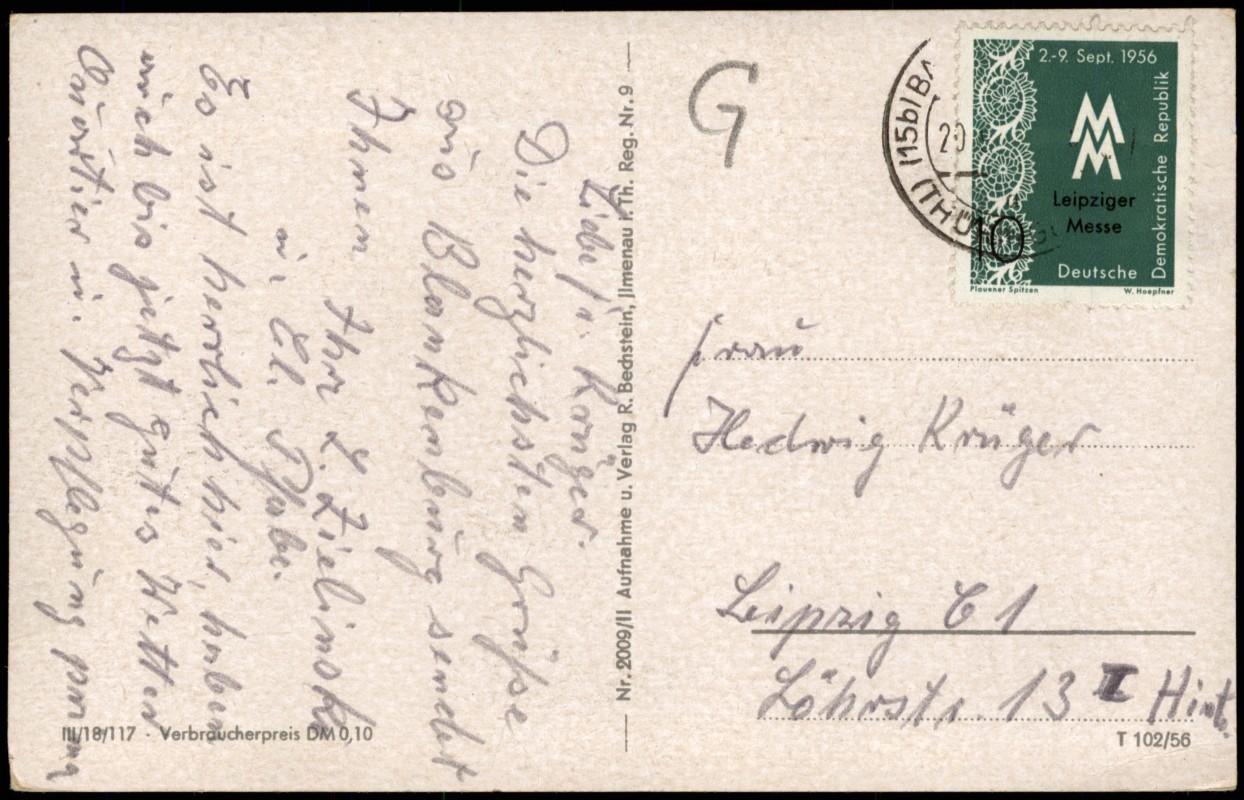 Liebe Fr. Krüger.
Die herzlichsten Grüsse
aus Blankenburg sendet
Ihnen Ihre L. Zielinski
u. El.
Es ist herrlich hier, haben
auch bis jetzt gutes Wetter
Quartier u. Verpflegung prima
III/18/117 · Verbraucherpreis DM 0,10
Nr. 2009/II Aufnahme u. Verlag R. Bechstein, Jlmenau i. Th. Reg. Nr. 9
G
(15b) BA
20
(THÜ
2.-9. Sept. 1956
MM
Leipziger
Messe
10
Deutsche
Demokratische Republik
Plauener Spitzen
W. Hoepfner
Frau
Hedwig Krüger
Leipzig C 1
Löhrstr. 13 I Hint.
T 102/56